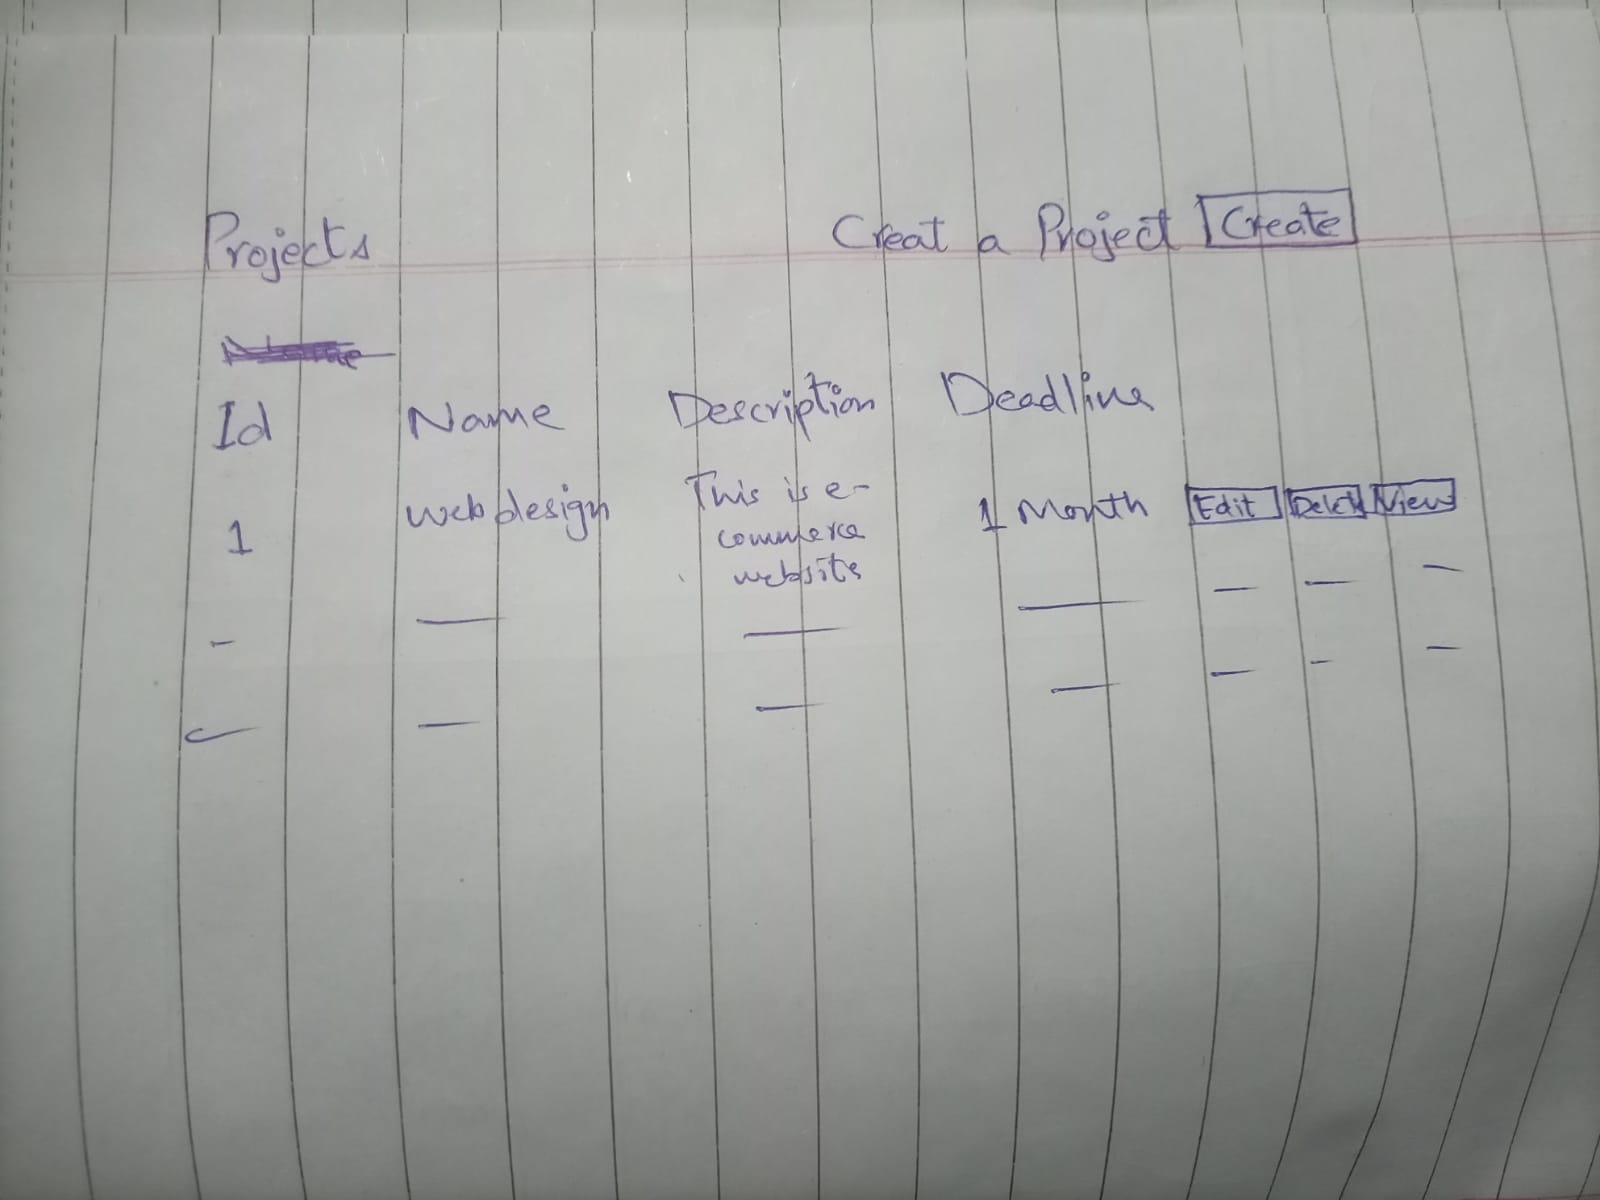 Projects Creat a Project Create
Id Name Description Deadline
1 web design This is e-
commerce
website
1 Month Edit Delete View